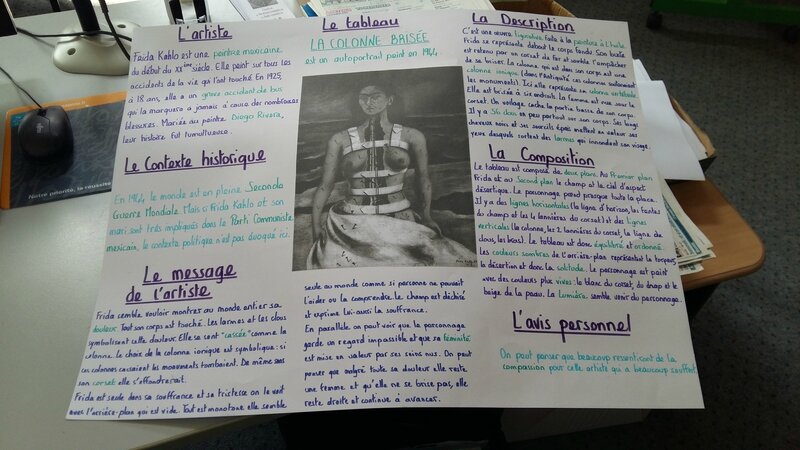 L'artiste
Frida Kahlo est une peintre mexicaine
du début du XXème siècle. Elle peint sur tous les
accidents de la vie qui l'ont touché. En 1925,
à 18 ans, elle a un grave accident de bus
qui la marquera à jamais à cause des nombreuses
blessures. Mariée au peintre Diego Rivera,
leur histoire fut tumultueuse.
Le Contexte historique
En 1944, le monde est en pleine Seconde
Guerre Mondiale. Mais si Frida Kahlo et son
mari sont très impliqués dans le Parti Communiste
mexicain, le contexte politique n'est pas évoqué ici.
Le message
de l'artiste
Frida semble vouloir montrer au monde entier sa
douleur. Tout son corps est touché. Les larmes et les clous
symbolisent cette douleur. Elle se sent "cassée" comme la
colonne. Le choix de la colonne ionique est symbolique : si
ces colonnes cassaient les monuments tombaient. De même sans
son corset elle s'effondrerait.
Frida est seule dans sa souffrance et sa tristesse on le voit
avec l'arrière-plan qui est vide. Tout est monotone elle semble
Le tableau
LA COLONNE BRISÉE
est un autoportrait peint en 1944.
seule au monde comme si personne ne pouvait
l'aider ou la comprendre. Le champ est déchiré
et exprime lui-aussi la souffrance.
En parallèle on peut voir que le personnage
garde un regard impassible et que sa féminité
est mise en valeur par ses seins nus. On peut
penser que malgré toute sa douleur elle reste
une femme et qu'elle ne se brise pas, elle
reste droite et continue à avancer.
La Description
C'est une œuvre figurative faite à la peinture à l'huile.
Frida se représente debout le corps fendu. Son buste
est retenu par un corset de fer et semble l'empêcher
de se briser. La colonne qui est dans son corps est une
colonne ionique (dans l'Antiquité ces colonnes soutenaient
les monuments). Ici elle représente sa colonne vertébrale
Elle est brisée à six endroits. La femme est nue sous le
corset. Un voilage cache la partie basse de son corps.
Il y a 56 clous un peu partout sur son corps. Ses longs
cheveux noirs et ses sourcils épais mettent en valeur ses
yeux desquels sortent des larmes qui innondent son visage.
La Composition
Le tableau est composé de deux plans. Au Premier plan
Frida et au Second plan le champ et le ciel d'aspect
désertique. Le personnage prend presque toute la place.
Il y a des lignes horizontales (la ligne d'horizon, les fentes
du champ et les 4 lannières du corset) et des lignes
verticales (la colonne, les 2 lannières du corset, la ligne de
clous, les bras). Le tableau est donc équilibré et ordonné.
Les couleurs sombres de l'arrière-plan représentent la torpeur,
la désertion et donc la solitude. Le personnage est peint
avec des couleurs plus vives : le blanc du corset, du drap et le
beige de la peau. La lumière semble venir du personnage.
L'avis personnel
On peut penser que beaucoup ressentiront de la
compassion pour cette artiste qui a beaucoup souffert
Notre priorité, la réussite